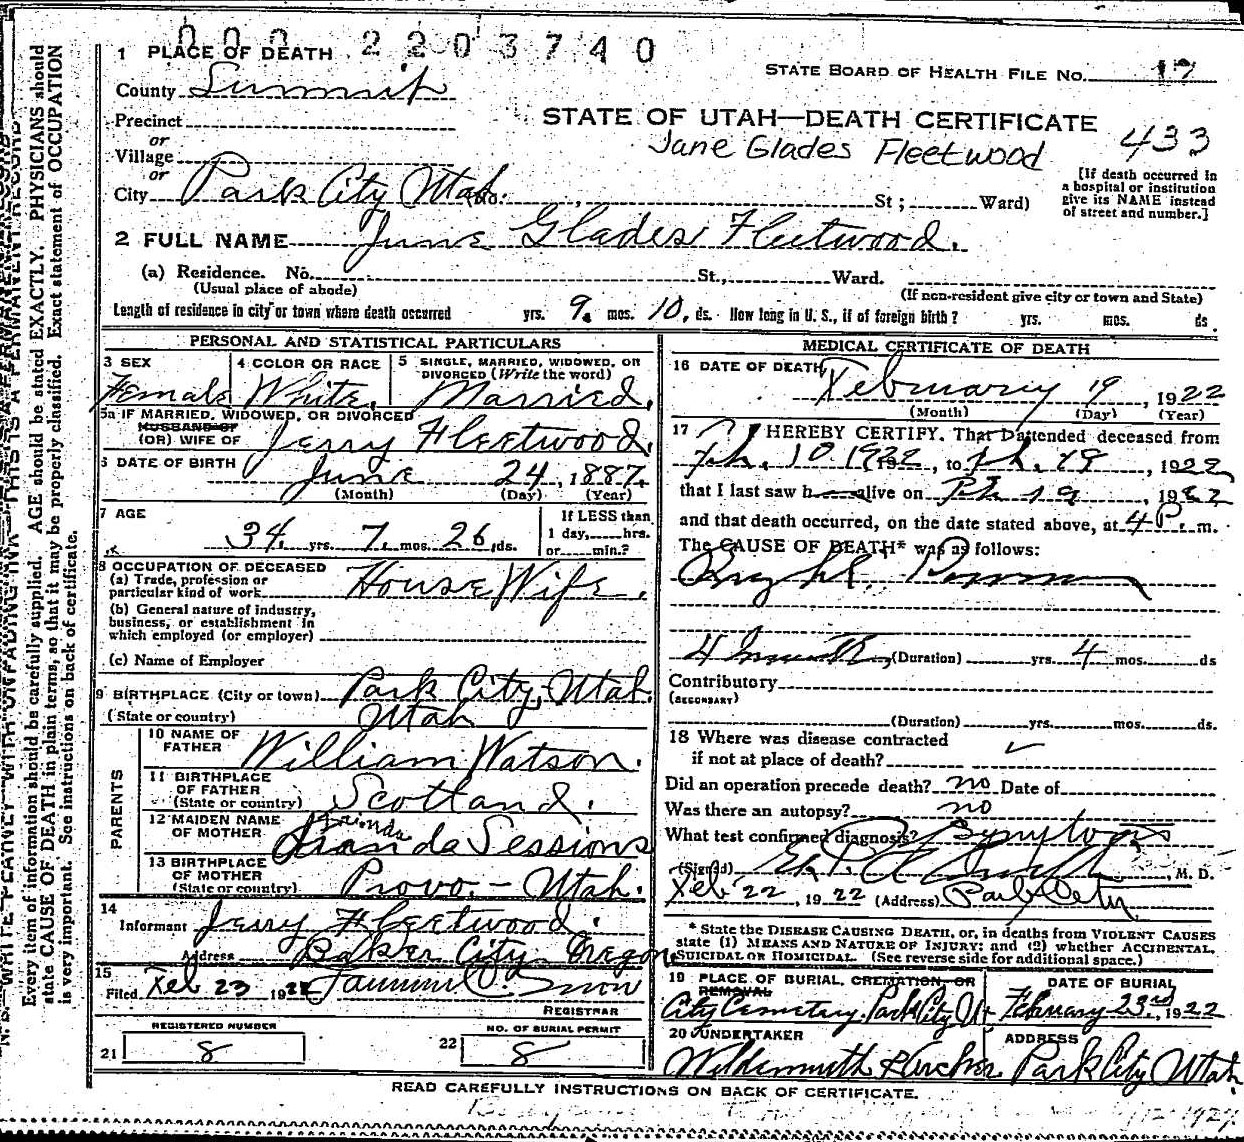 000 2203740
1 PLACE OF DEATH
STATE BOARD OF HEALTH FILE NO. 17
County Summit
STATE OF UTAH—DEATH CERTIFICATE
433
Precinct
Jane Glades Fleetwood
or
Village
or
City Park City Utah. No. St; Ward)
[If death occurred in
a hospital or institution
give its NAME instead
of street and number.]
2 FULL NAME June Glades Fleetwood.
(a) Residence. No. St., Ward.
(Usual place of abode)
(If non-resident give city or town and State)
Length of residence in city or town where death occurred yrs. 9. mos. 10. ds. How long in U. S., if of foreign birth? yrs. mos. ds.
PERSONAL AND STATISTICAL PARTICULARS
3 SEX
Female
4 COLOR OR RACE
White.
5 SINGLE, MARRIED, WIDOWED, OR
DIVORCED (Write the word)
Married.
5a IF MARRIED, WIDOWED, OR DIVORCED
HUSBAND OF
(OR) WIFE OF Jerry Fleetwood.
6 DATE OF BIRTH
June 24, 1887.
(Month) (Day) (Year)
7 AGE
34. yrs. 7. mos. 26, ds.
If LESS than
1 day, hrs.
or min.?
8 OCCUPATION OF DECEASED
(a) Trade, profession or
particular kind of work House Wife.
(b) General nature of industry,
business, or establishment in
which employed (or employer)
(c) Name of Employer
9 BIRTHPLACE (City or town) Park City, Utah
(State or country) Utah
PARENTS
10 NAME OF
FATHER William Watson.
11 BIRTHPLACE
OF FATHER
(State or country) Scotland.
12 MAIDEN NAME
OF MOTHER Sessions
13 BIRTHPLACE
OF MOTHER
(State or country) Provo. - Utah.
14
Informant Jerry Fleetwood.
Address Baker City, Oregon
15
Filed Feb 23 1922 Snow
REGISTRAR
REGISTERED NUMBER
21 8
NO. OF BURIAL PERMIT
22 8
MEDICAL CERTIFICATE OF DEATH
16 DATE OF DEATH
February 19, 1922
(Month) (Day) (Year)
17 I HEREBY CERTIFY, That I attended deceased from
Feb. 10 1922, to Feb. 19, 1922
that I last saw h alive on Feb 19, 1922
and that death occurred, on the date stated above, at 4 P. m.
The CAUSE OF DEATH* was as follows:
4 months (Duration) yrs. 4 mos. ds
Contributory
(SECONDARY)
(Duration) yrs. mos. ds.
18 Where was disease contracted
if not at place of death?
Did an operation precede death? no Date of
Was there an autopsy? no
What test confirmed diagnosis?
(Signed) M. D.
Feb 22, 1922 (Address) Park City
* State the DISEASE CAUSING DEATH, or, in deaths from VIOLENT CAUSES
state (1) MEANS AND NATURE OF INJURY; and (2) whether ACCIDENTAL,
SUICIDAL OR HOMICIDAL. (See reverse side for additional space.)
19 PLACE OF BURIAL, CREMATION, OR
REMOVAL
City Cemetery. Park City Ut
DATE OF BURIAL
February 23rd, 1922
20 UNDERTAKER
ADDRESS
Park City Utah
READ CAREFULLY INSTRUCTIONS ON BACK OF CERTIFICATE.
Every item of information should be carefully supplied. AGE should be stated EXACTLY. PHYSICIANS should
state CAUSE OF DEATH in plain terms, so that it may be properly classified. Exact statement of OCCUPATION
is very important. See instructions on back of certificate.